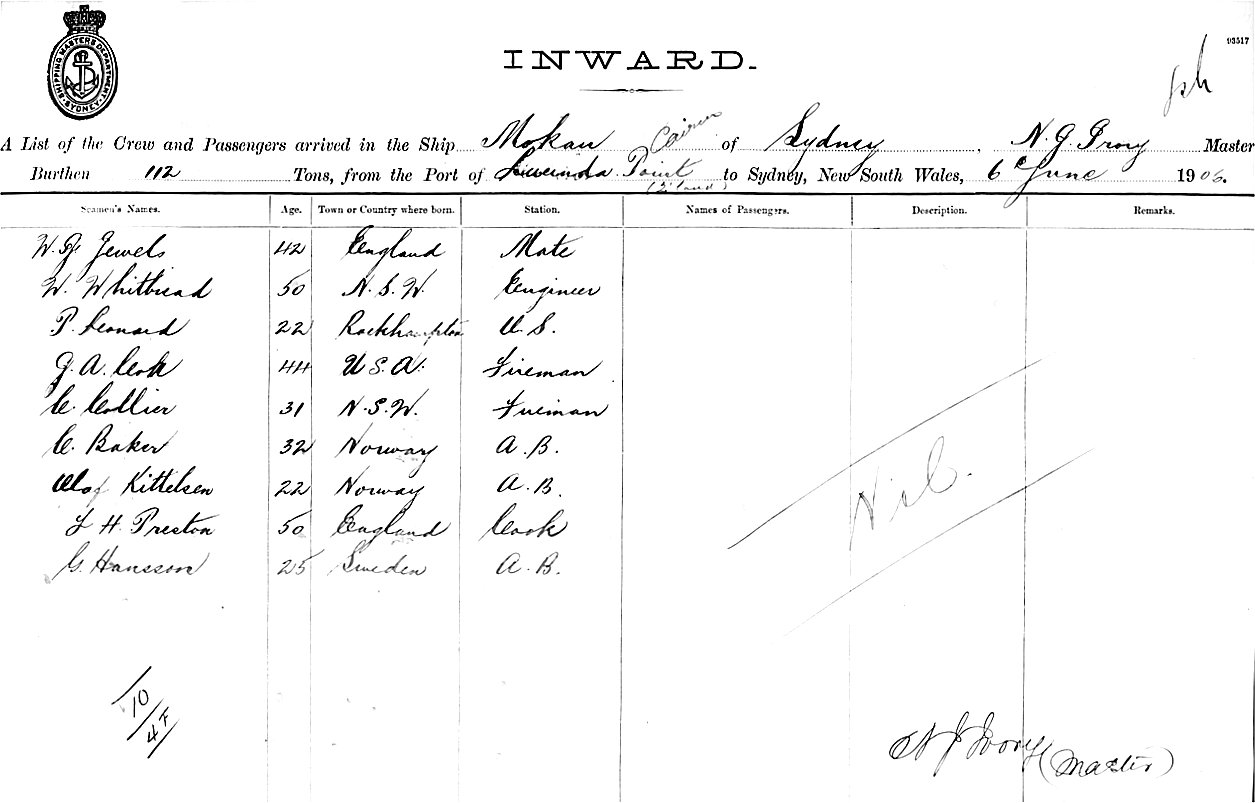 93517
SHIPPING MASTERS DEPARTMENT SYDNEY
INWARD.
A List of the Crew and Passengers arrived in the Ship Mokau of Sydney, Master
Burthen 112 Tons, from the Port of Point to Sydney, New South Wales, 6 June 1906.
Seamen's Names. Age. Town or Country where born. Station. Names of Passengers. Description. Remarks.
W. Jewels 42 England Mate
W. Whitbread 50 N.S.W. Engineer
P. Leonard 22 Rockhampton U.S.
J. A. Cook 44 U.S.A. Fireman
C. Collier 31 N.S.W. Fireman
C. Baker 32 Norway A.B.
Olof Kittelsen 22 Norway A.B.
H. Preston 50 England Cook
G. Hansson 25 Sweden A.B.
Nil.
10
4 F
(Master)